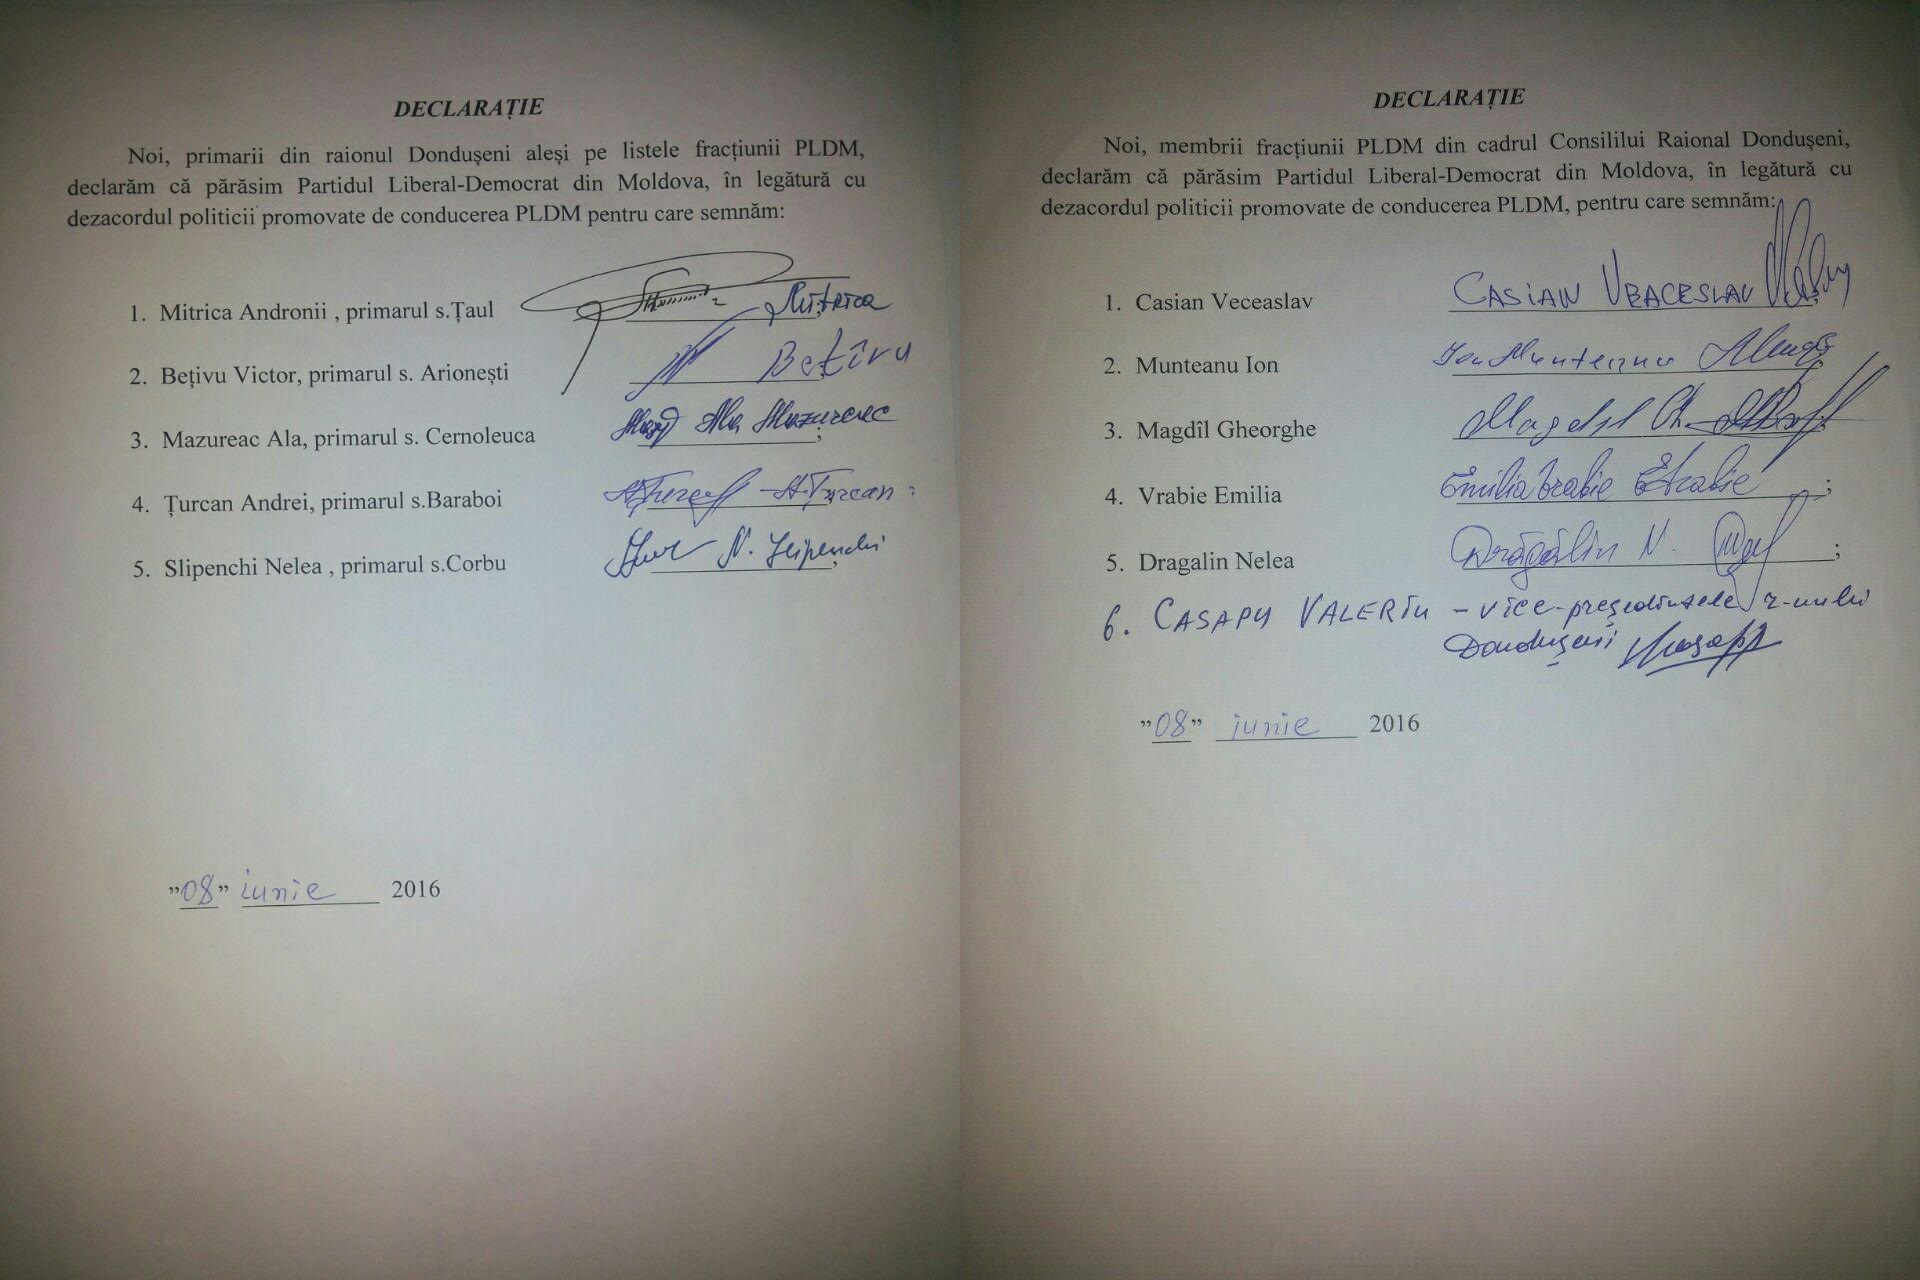 DECLARAȚIE
Noi, primarii din raionul Dondușeni aleși pe listele fracțiunii PLDM,
declarăm că părăsim Partidul Liberal-Democrat din Moldova, în legătură cu
dezacordul politicii promovate de conducerea PLDM pentru care semnăm:
1. Mitrica Andronii , primarul s.Țaul Mitrica
2. Bețivu Victor, primarul s. Arionești Bețîvu
3. Mazureac Ala, primarul s. Cernoleuca Ala Mazureac
4. Țurcan Andrei, primarul s.Baraboi A.Țurcan
5. Slipenchi Nelea , primarul s.Corbu N. Slipenchi
”08” iunie 2016
DECLARAȚIE
Noi, membrii fracțiunii PLDM din cadrul Consililui Raional Dondușeni,
declarăm că părăsim Partidul Liberal-Democrat din Moldova, în legătură cu
dezacordul politicii promovate de conducerea PLDM, pentru care semnăm:
1. Casian Veceaslav CASIAN VEACESLAV
2. Munteanu Ion Ion Munteanu
3. Magdîl Gheorghe Magdîl Gh.
4. Vrabie Emilia Emilia Vrabie EVrabie
5. Dragalin Nelea Drăgălin N. ;
6. CASAPU VALERIU - vice-președintele r-nului
Dondușeni
”08” iunie 2016